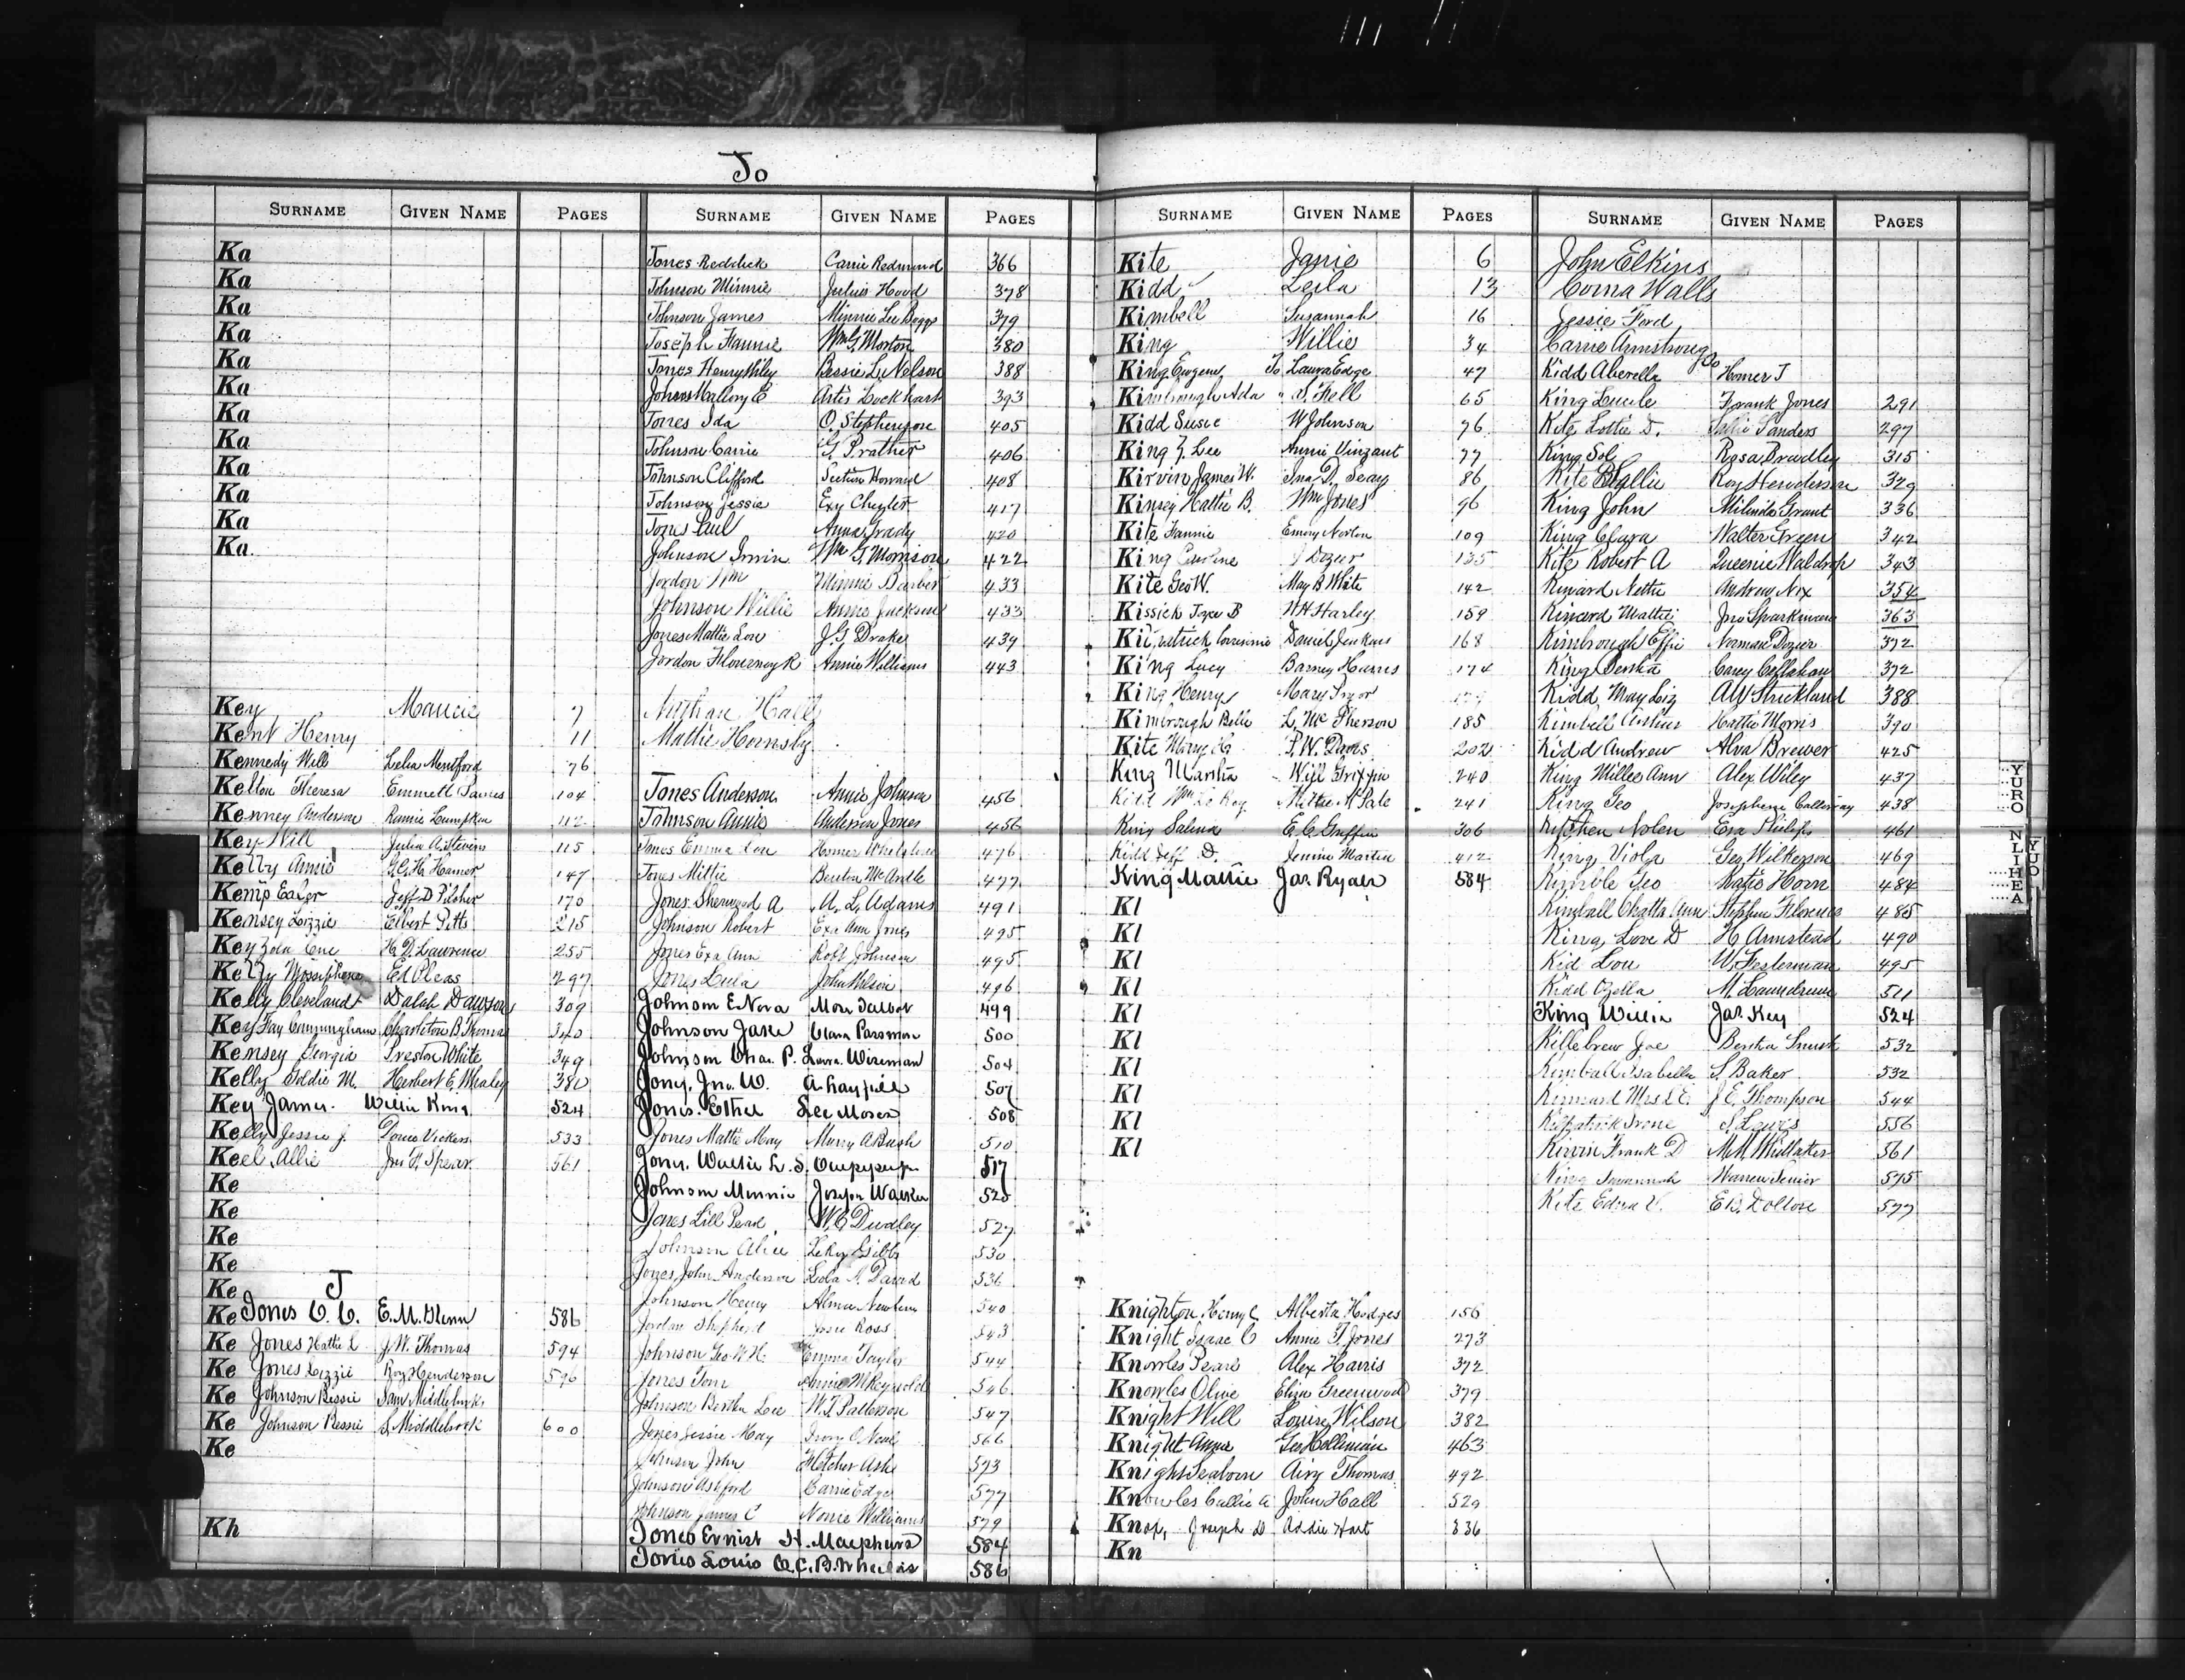 Jo
SURNAME GIVEN NAME PAGES
Ka
Ka
Ka
Ka
Ka
Ka
Ka
Ka
Ka
Ka
Ka
Ka
Key Maucie 7
Kent Henry 11
Kennedy Will Lelia Mentford 76
Kelton Theresa Emmett 104
Kenney Anderson Rannie Lumpkin 112
Key Will Julia 115
Kelly Annie G.C.H. Hamer 147
Kemp Jeff D Pilcher 170
Kensey Lizzie Elbert Pitts 215
Key Zola H D Lawrence 255
Kelly Ed Pleas 297
Kelly Cleveland Dalah Dawson 309
Key Fay Cunningham Charleton B Thomas 340
Kensey Georgia Preston White 349
Kelly Goldie M. Herbert E. Whaley 380
Key James Willie King 524
Kelly Jessie J. Vickers 533
Keel Allie Jno A. Spear 561
Ke
Ke
Ke
Ke
Ke J
Ke Jones C. C. E. M. Glenn 586
Ke Jones Hattie L J. W. Thomas 594
Ke Jones Lizzie Roy Henderson 596
Ke Johnson Bessie Sam Middlebrook
Ke Johnson Bessie S. Middlebrook 600
Ke
Kh
SURNAME GIVEN NAME PAGES
Jones Reddick Carrie Redmond 366
Johnson Minnie Julius Hood 378
Johnson James Minnie Lee Boggs 379
Joseph Fannie Wm G. Morton 380
Jones Henry Wiley Bessie L. Nelson 388
Mallory E Artis Lockhart 393
Jones Ida O. Stephenson 405
Johnson Carrie G. Prather 406
Johnson Clifford Howard 408
Johnson Jessie Exy 417
Jones Paul Anna Grady 420
Johnson Irwin Wm G. Morrison 422
Jordon Wm Minnie Barber 433
Johnson Willie Annie Jackson 433
Jones Mattie Lou J G Drake 439
Jordon Flournoy R Annie Williams 443
Nathan Hall
Mattie Hornsby
Jones Anderson Annie Johnson 456
Johnson Annie Anderson Jones 456
Jones Emma Lou Homer 476
Jones Mittie Benton McArdle 477
Jones Sherwood A A. L. Adams 491
Johnson Robert Exa Ann Jones 495
Jones Exa Ann Robt Johnson 495
Jones Lula John Wilson 496
Johnson E Nora Mose Talbot 499
Johnson Jane Clara 500
Johnson Chas. P. Laura Wiseman 504
Jones, Jno. W. 507
Jones Ethel Lee Moses 508
Jones Mattie May Murry A Bush 510
Jones Wallie L. S. 517
Johnson Minnie Joseph Walker 525
Jones Lill Pearl W. C Dudley 527
Johnson Alice LeRoy Gibbs 530
Jones John Anderson Leda A. David 536
Johnson Henry Alma 540
Jordan Shepherd Josie Ross 543
Johnson Geo W H. Emma Taylor 544
Jones Tom Annie McReynolds 546
Johnson Bertha Lee W. T. Patterson 547
Jones Jessie May Ivory O Neal 566
Johnson John Fletcher Ashe 573
Johnson Ashford Carrie Edge 577
Johnson James C Nonie Williams 579
Jones Ernist H. 584
Jones Louis C. B. 586
SURNAME GIVEN NAME PAGES
Kite Janie 6
Kidd Leila 13
Kimbell Susannah 16
King Willie 34
King Eugene To Laura Edge 47
Kimbrough Ada " S. Fell 65
Kidd Susie W Johnson 76
King Z. Lee Annie Vinzant 77
Kirvin James W. Ina D. Seay 86
Kinsey Hattie B. Wm Jones 96
Kite Fannie Emory Norton 109
King J Dozier 135
Kite Geo W. May B White 142
Kissick B W H Harley 159
Kilpatrick Daniel Jenkins 168
King Lucy Barney Harris 174
King Henry Mary
Kimbrough Belle L. McPherson 185
Kite Mary P. W. Davis 202
King Martha Will Griffin 240
Kidd Wm Le Roy Mittie M Pate 241
King Salina E. C. Griffin 306
Kidd Jeff D. Jennie Martin 412
King Mattie Jas Ryals 584
Kl
Kl
Kl
Kl
Kl
Kl
Kl
Kl
Kl
Kl
Knighton Henry C Alberta Hodges 156
Knight Isaac C Annie T. Jones 273
Knowles Pearl Alex Harris 372
Knowles Olive Eliza Greenwood 379
Knight Will Louise Wilson 382
Knight Annie Geo Holliman 463
Knight Seaborn Airy Thomas 492
Knowles Callie A John Hall 529
Knap, Joseph D Addie Hart 536
Kn
SURNAME GIVEN NAME PAGES
John Elkins
Corna Walls
Jessie Ford
Carrie Armstrong
Kidd Aberella To Homer T
King Lucile Frank Jones 291
Kite Lottie D. Sanders 297
King Sol Rosa Bradley 315
Kite Roy Henderson 329
King John Milinda Grant 336
King Clara Walter Green 342
Kite Robert A Queenie Waldrop 343
Kinard Nettie Andrew Nix 354
Kinard Mattie Jno Sparkman 363
Kimbrough Effie Norman Dozier 372
King Bertha Carey Callahan 372
Kidd May Liz A W Strickland 388
Kimbell Arthur Hattie Morris 390
Kidd Andrew Alva Brewer 425
King Millie Ann Alex Wiley 437
King Geo Josephene Calloway 438
Kitchen Nolen Eva Philips 461
King Viola Geo Wilkerson 469
Kimble Geo Katie Horn 484
Kimball Chatta Ann Stephen Florence 485
King, Love D H Armstead 490
Kid Lou W. Festerman 495
Kidd Ozella M. 511
King Willie Jas Key 524
Killebrew Joe Bertha 532
Kimball Isabella S. Baker 532
Kinnard Mrs L E. J. E. Thompson 544
Kilpatrick Irene S. Lewis 556
Kirvin Frank D M. M. Whittaker 561
King Savannah Warren Senior 575
Kite Edna V. E B. Dollar 577